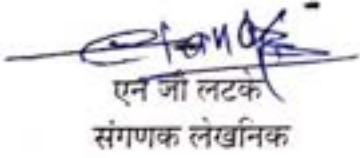 एन जी लटके
संगणक लेखनिक